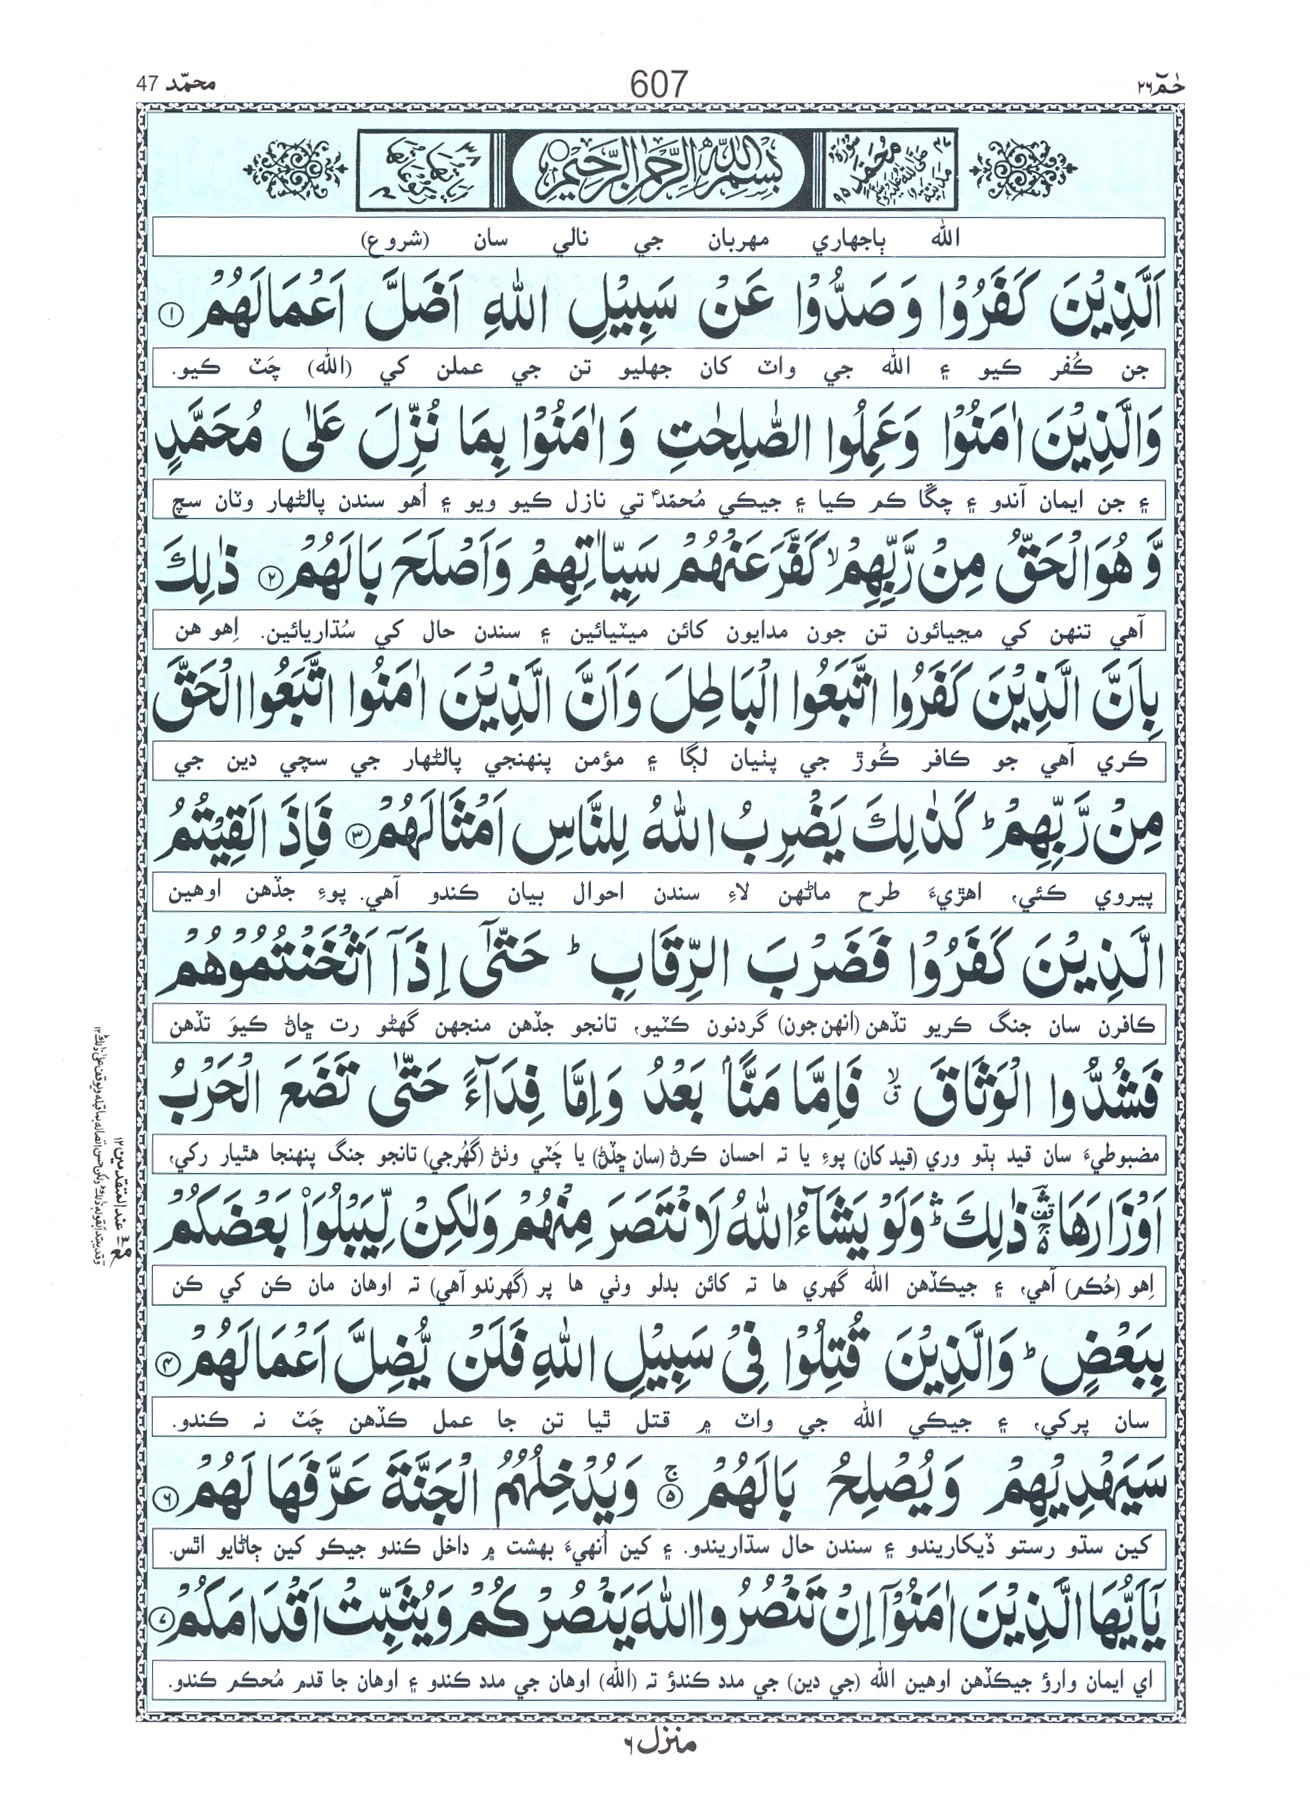 حٰمٓ ٢٦
607
محمّد 47
سُوْرَةُ مُحَمَّد
بِسْمِ اللهِ الرَّحْمٰنِ الرَّحِيْمِ
الله ٻاجهاري مهربان جي نالي سان (شروع)
اَلَّذِيْنَ كَفَرُوْا وَصَدُّوْا عَنْ سَبِيْلِ اللّٰهِ اَضَلَّ اَعْمَالَهُمْ ۝١
جن ڪُفر ڪيو ۽ الله جي واٽ کان جهليو تن جي عملن کي (الله) چَٽ ڪيو.
وَالَّذِيْنَ اٰمَنُوْا وَعَمِلُوا الصّٰلِحٰتِ وَاٰمَنُوْا بِمَا نُزِّلَ عَلٰى مُحَمَّدٍ
۽ جن ايمان آندو ۽ چڱا ڪم ڪيا ۽ جيڪي مُحمّدؐ تي نازل ڪيو ويو ۽ اُهو سندن پالڻهار وٽان سچ
وَّهُوَ الْحَقُّ مِنْ رَّبِّهِمْ ۙ كَفَّرَ عَنْهُمْ سَيِّاٰتِهِمْ وَاَصْلَحَ بَالَهُمْ ۝٢ ذٰلِكَ
آهي تنهن کي مڃيائون تن جون مدايون کائن ميٽيائين ۽ سندن حال کي سُڌاريائين. اِهو هن
بِاَنَّ الَّذِيْنَ كَفَرُوا اتَّبَعُوا الْبَاطِلَ وَاَنَّ الَّذِيْنَ اٰمَنُوا اتَّبَعُوا الْحَقَّ
ڪري آهي جو ڪافر ڪُوڙ جي پٺيان لڳا ۽ مؤمن پنهنجي پالڻهار جي سچي دين جي
مِنْ رَّبِّهِمْ ؕ كَذٰلِكَ يَضْرِبُ اللّٰهُ لِلنَّاسِ اَمْثَالَهُمْ ۝٣ فَاِذَا لَقِيْتُمُ
پيروي ڪئي، اهڙيءَ طرح ماڻهن لاءِ سندن احوال بيان ڪندو آهي. پوءِ جڏهن اوهين
الَّذِيْنَ كَفَرُوْا فَضَرْبَ الرِّقَابِ ؕ حَتّٰۤى اِذَاۤ اَثْخَنْتُمُوْهُمْ
ڪافرن سان جنگ ڪريو تڏهن (اُنهن جون) گردنون ڪٽيو، تانجو جڏهن منجهن گهڻو رت ڇاڻ ڪيوَ تڏهن
فَشُدُّوا الْوَثَاقَ ۙ فَاِمَّا مَنًّۢا بَعْدُ وَاِمَّا فِدَآءً حَتّٰى تَضَعَ الْحَرْبُ
مضبوطيءَ سان قيد ٻڌو وري (قيد کان) پوءِ يا ته احسان ڪرڻ (سان ڇڏڻ) يا چَٽي وٺڻ (گهُرجي) تانجو جنگ پنهنجا هٿيار رکي،
اَوْزَارَهَا ۛ۫ ذٰلِكَ ۛؕ وَلَوْ يَشَآءُ اللّٰهُ لَانْتَصَرَ مِنْهُمْ وَلٰكِنْ لِّيَبْلُوَا۟ بَعْضَكُمْ
اِهو (حُڪم) آهي، ۽ جيڪڏهن الله گهري ها ته کائن بدلو وٺي ها پر (گهرندو آهي) ته اوهان مان ڪن کي ڪن
بِبَعْضٍ ؕ وَالَّذِيْنَ قُتِلُوْا فِيْ سَبِيْلِ اللّٰهِ فَلَنْ يُّضِلَّ اَعْمَالَهُمْ ۝٤
سان پرکي، ۽ جيڪي الله جي واٽ ۾ قتل ٿيا تن جا عمل ڪڏهن چَٽ نہ ڪندو.
سَيَهْدِيْهِمْ وَيُصْلِحُ بَالَهُمْ ۝٥ۚ وَيُدْخِلُهُمُ الْجَنَّةَ عَرَّفَهَا لَهُمْ ۝٦
کين سڌو رستو ڏيکاريندو ۽ سندن حال سڌاريندو. ۽ کين اُنهيءَ بهشت ۾ داخل ڪندو جيڪو کين ڄاڻايو اٿس.
يٰۤاَيُّهَا الَّذِيْنَ اٰمَنُوْۤا اِنْ تَنْصُرُوا اللّٰهَ يَنْصُرْكُمْ وَيُثَبِّتْ اَقْدَامَكُمْ ۝٧
اي ايمان وارؤ جيڪڏهن اوهين الله (جي دين) جي مدد ڪندؤ ته (الله) اوهان جي مدد ڪندو ۽ اوهان جا قدم مُحڪم ڪندو.
منزل ٦